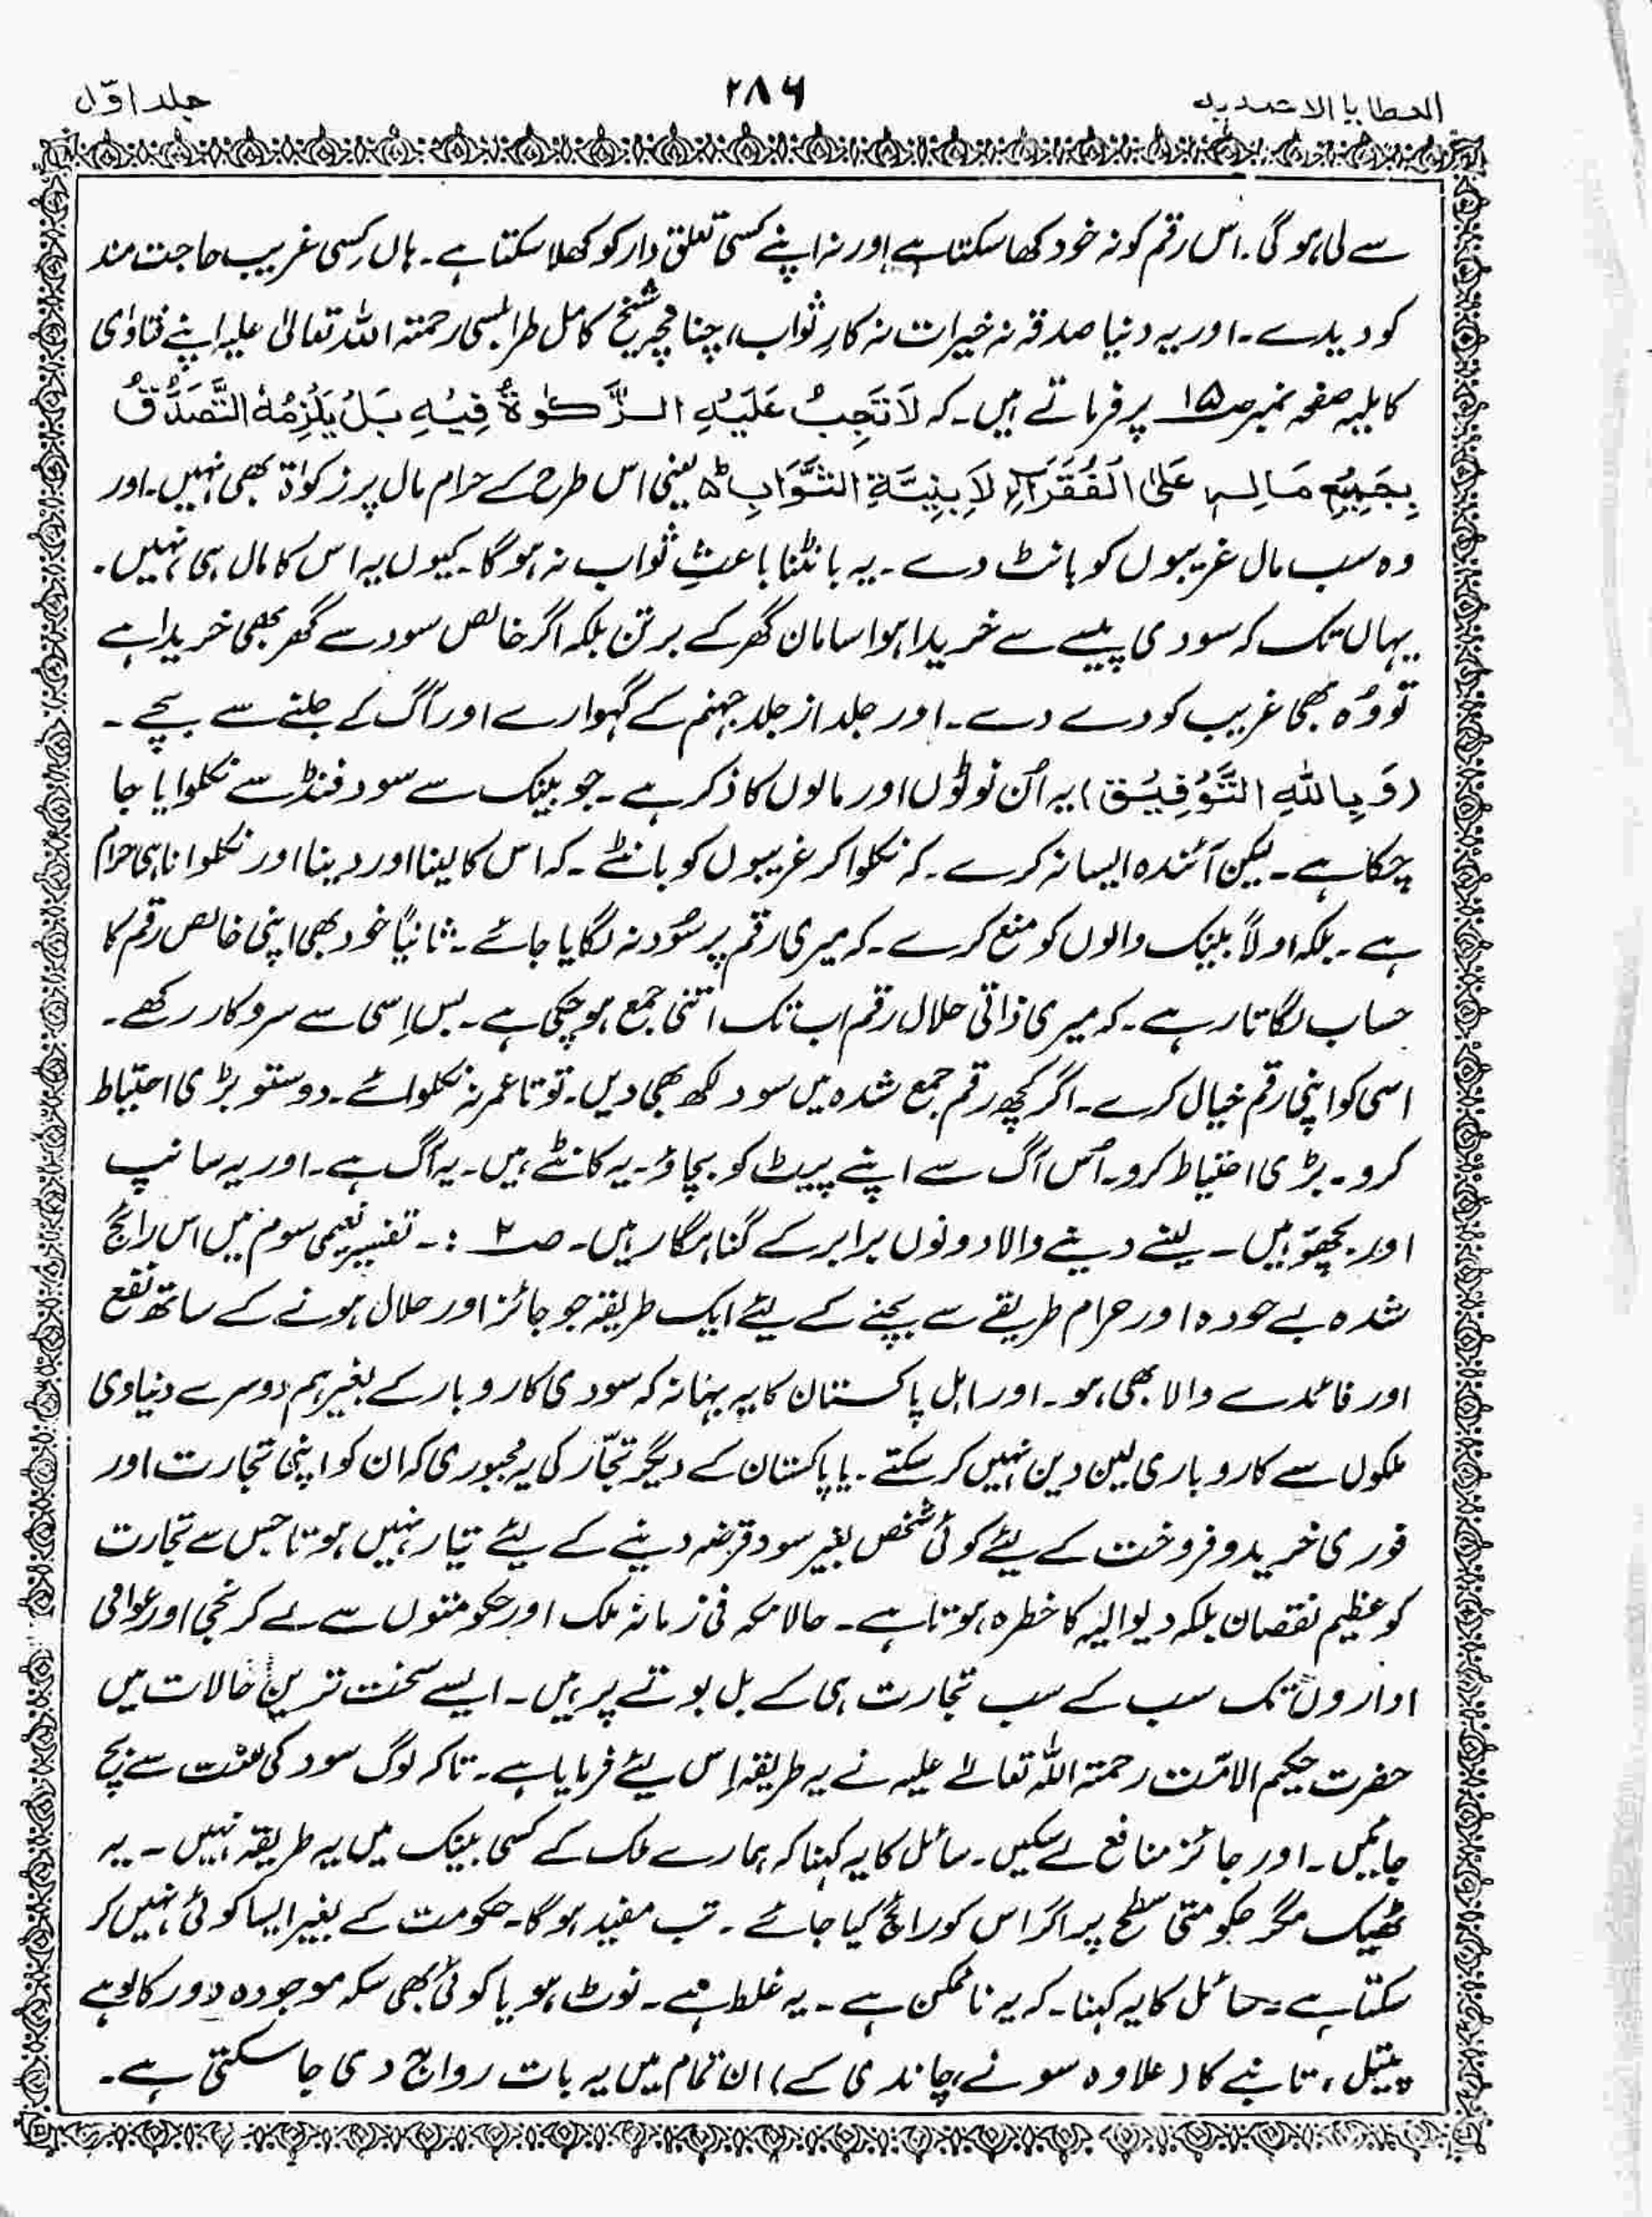 العطایا الاحمدیہ ۲۸۶ جلد اوّل
سے لی ہوگی۔ اس رقم کو نہ خود کھا سکتا ہے اور نہ اپنے کسی تعلق دار کو کھلا سکتا ہے۔ ہاں کِسی غریب حاجت مند
کو دیدے۔ اور یہ دنیا صدقہ نہ خیرات نہ کارِ ثواب، چنانچہ شیخ کامل طرابلسی رحمتہ اللہ تعالیٰ علیہ اپنے فتاوٰی
کاملیہ صفحہ نمبر صـ۱۵ پر فرماتے ہیں۔ کہ لَا تَجِبُ عَلَیْہِ الــزَّکٰوۃُ فِیْہِ بَلْ یَلْزِمُہُ التَّصَدُّقُ
بِجَمِیْعِ مَالِہٖ عَلَی الْفُقَرَآءِ لَا بِنِیَّۃِ الثَّوَابِ ؕ یعنی اس طرح کے حرام مال پر زکوٰۃ بھی نہیں۔ اور
وہ سب مال غریبوں کو بانٹ دے۔ یہ بانٹنا باعثِ ثواب نہ ہوگا۔ کیوں یہ اس کا مال ہی نہیں۔
یہاں تک کہ سودی پیسے سے خریدا ہوا سامان گھر کے برتن بلکہ اگر خالص سود سے گھر بھی خریدا ہے
تو وُہ بھی غریب کو دے دے۔ اور جلد از جلد جہنم کے گہوارے اور آگ کے جلنے سے بچے۔
(وَ بِاللّٰہِ التَّوْفِیْق) یہ اُن نوٹوں اور مالوں کا ذکر ہے۔ جو بینک سے سود فنڈ سے نکلوایا جا
چکا ہے۔ لیکن آئندہ ایسا نہ کرے۔ کہ نکلوا کر غریبوں کو بانٹے۔ کہ اس کا لینا اور دینا اور نکلوانا ہی حرام
ہے۔ بلکہ اولاً بینک والوں کو منع کرے۔ کہ میری رقم پر سُود نہ لگایا جائے۔ ثانیاً خود بھی اپنی خالص رقم کا
حساب لگاتا رہے۔ کہ میری ذاتی حلال رقم اب تک اتنی جمع ہو چکی ہے۔ بس اِسی سے سروکار رکھے۔
اسی کو اپنی رقم خیال کرے۔ اگر کچھ رقم جمع شدہ میں سود لکھ بھی دیں۔ تو تا عمر نہ نکلوائے۔ دوستو بڑی احتیاط
کرو۔ بڑی احتیاط کرو۔ اُس آگ سے اپنے پیٹ کو بچاؤ۔ یہ کانٹے ہیں۔ یہ آگ ہے۔ اور یہ سانپ
اور بچھوّ ہیں۔ لینے دینے والا دونوں برابر کے گناہگار ہیں۔ صـ۲ :۔ تفسیر نعیمی سوم میں اس رائج
شدہ بے حودہ اور حرام طریقے سے بچنے کے لیئے ایک طریقہ جو جائز اور حلال ہونے کے ساتھ نفع
اور فائدے والا بھی ہو۔ اور اہل پاکستان کا یہ بہانہ کہ سودی کاروبار کے بغیر ہم دوسرے دنیاوی
ملکوں سے کاروباری لین دین نہیں کر سکتے۔ یا پاکستان کے دیگر تجّار کی یہ مجبوری کہ ان کو اپنی تجارت اور
فوری خرید و فروخت کے لیئے کوئی شخص بغیر سود قرضہ دینے کے لیئے تیار نہیں ہوتا جس سے تجارت
کو عظیم نقصان بلکہ دیوالیہ کا خطرہ ہوتا ہے۔ حالانکہ فی زمانہ ملک اور حکومتوں سے لے کر نجی اور عوامی
اداروں تک سب کے سب تجارت ہی کے بل بوتے پر ہیں۔ ایسے سخت ترین حالات میں
حضرت حکیم الامّت رحمتہ اللہ تعالےٰ علیہ نے یہ طریقہ اِس لیئے فرمایا ہے۔ تاکہ لوگ سود کی لعنت سے بچ
جائیں۔ اور جائز منافع لے سکیں۔ سائل کا یہ کہنا کہ ہمارے ملک کے کسی بینک میں یہ طریقہ نہیں۔ یہ
ٹھیک مگر حکومتی سطح پر اگر اس کو رائج کیا جائے۔ تب مفید ہوگا۔ حکومت کے بغیر ایسا کوئی نہیں کر
سکتا ہے۔ سائل کا یہ کہنا۔ کہ یہ ناممکن ہے۔ یہ غلط ہے۔ نوٹ ہو یا کوئی بھی سکہ موجودہ دور کا لوہے
پیتل، تانبے کا (علاوہ سونے، چاندی کے) ان تمام میں یہ بات رواج دی جا سکتی ہے۔